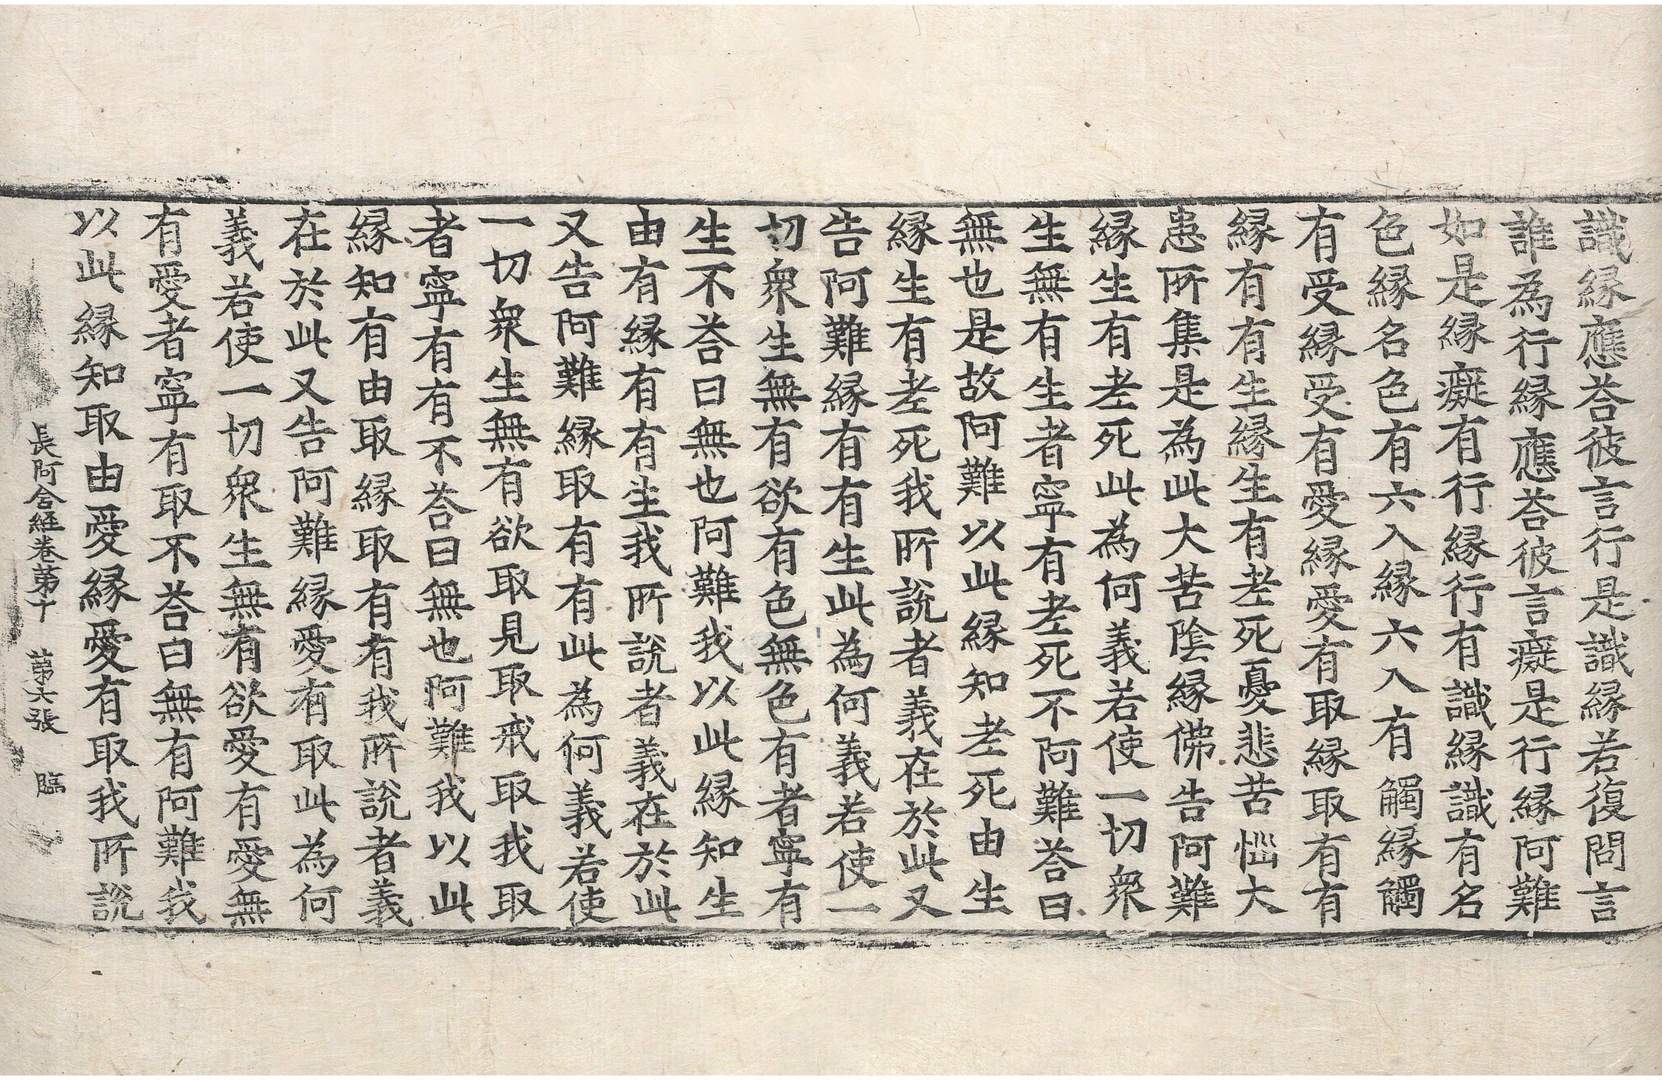 識緣應荅彼言行是識緣若復問言
誰為行緣應荅彼言癡是行緣阿難
如是緣癡有行緣行有識緣識有名
色緣名色有六入緣六入有觸緣觸
有受緣受有愛緣愛有取緣取有有
緣有有生緣生有老死憂悲苦惱大
患所集是為此大苦陰緣佛告阿難
緣生有老死此為何義若使一切衆
生無有生者寧有老死不阿難荅曰
無也是故阿難以此緣知老死由生
緣生有老死我所說者義在於此又
告阿難緣有有生此為何義若使一
切衆生無有欲有色無色有者寧有
生不荅曰無也阿難我以此緣知生
由有緣有有生我所說者義在於此
又告阿難緣取有有此為何義若使
一切衆生無有欲取見取戒取我取
者寧有有不荅曰無也阿難我以此
緣知有由取緣取有有我所說者義
在於此又告阿難緣愛有取此為何
義若使一切衆生無有欲愛有愛無
有愛者寧有取不荅曰無有阿難我
以此緣知取由愛緣愛有取我所說
長阿含經卷第十 第六張 臨